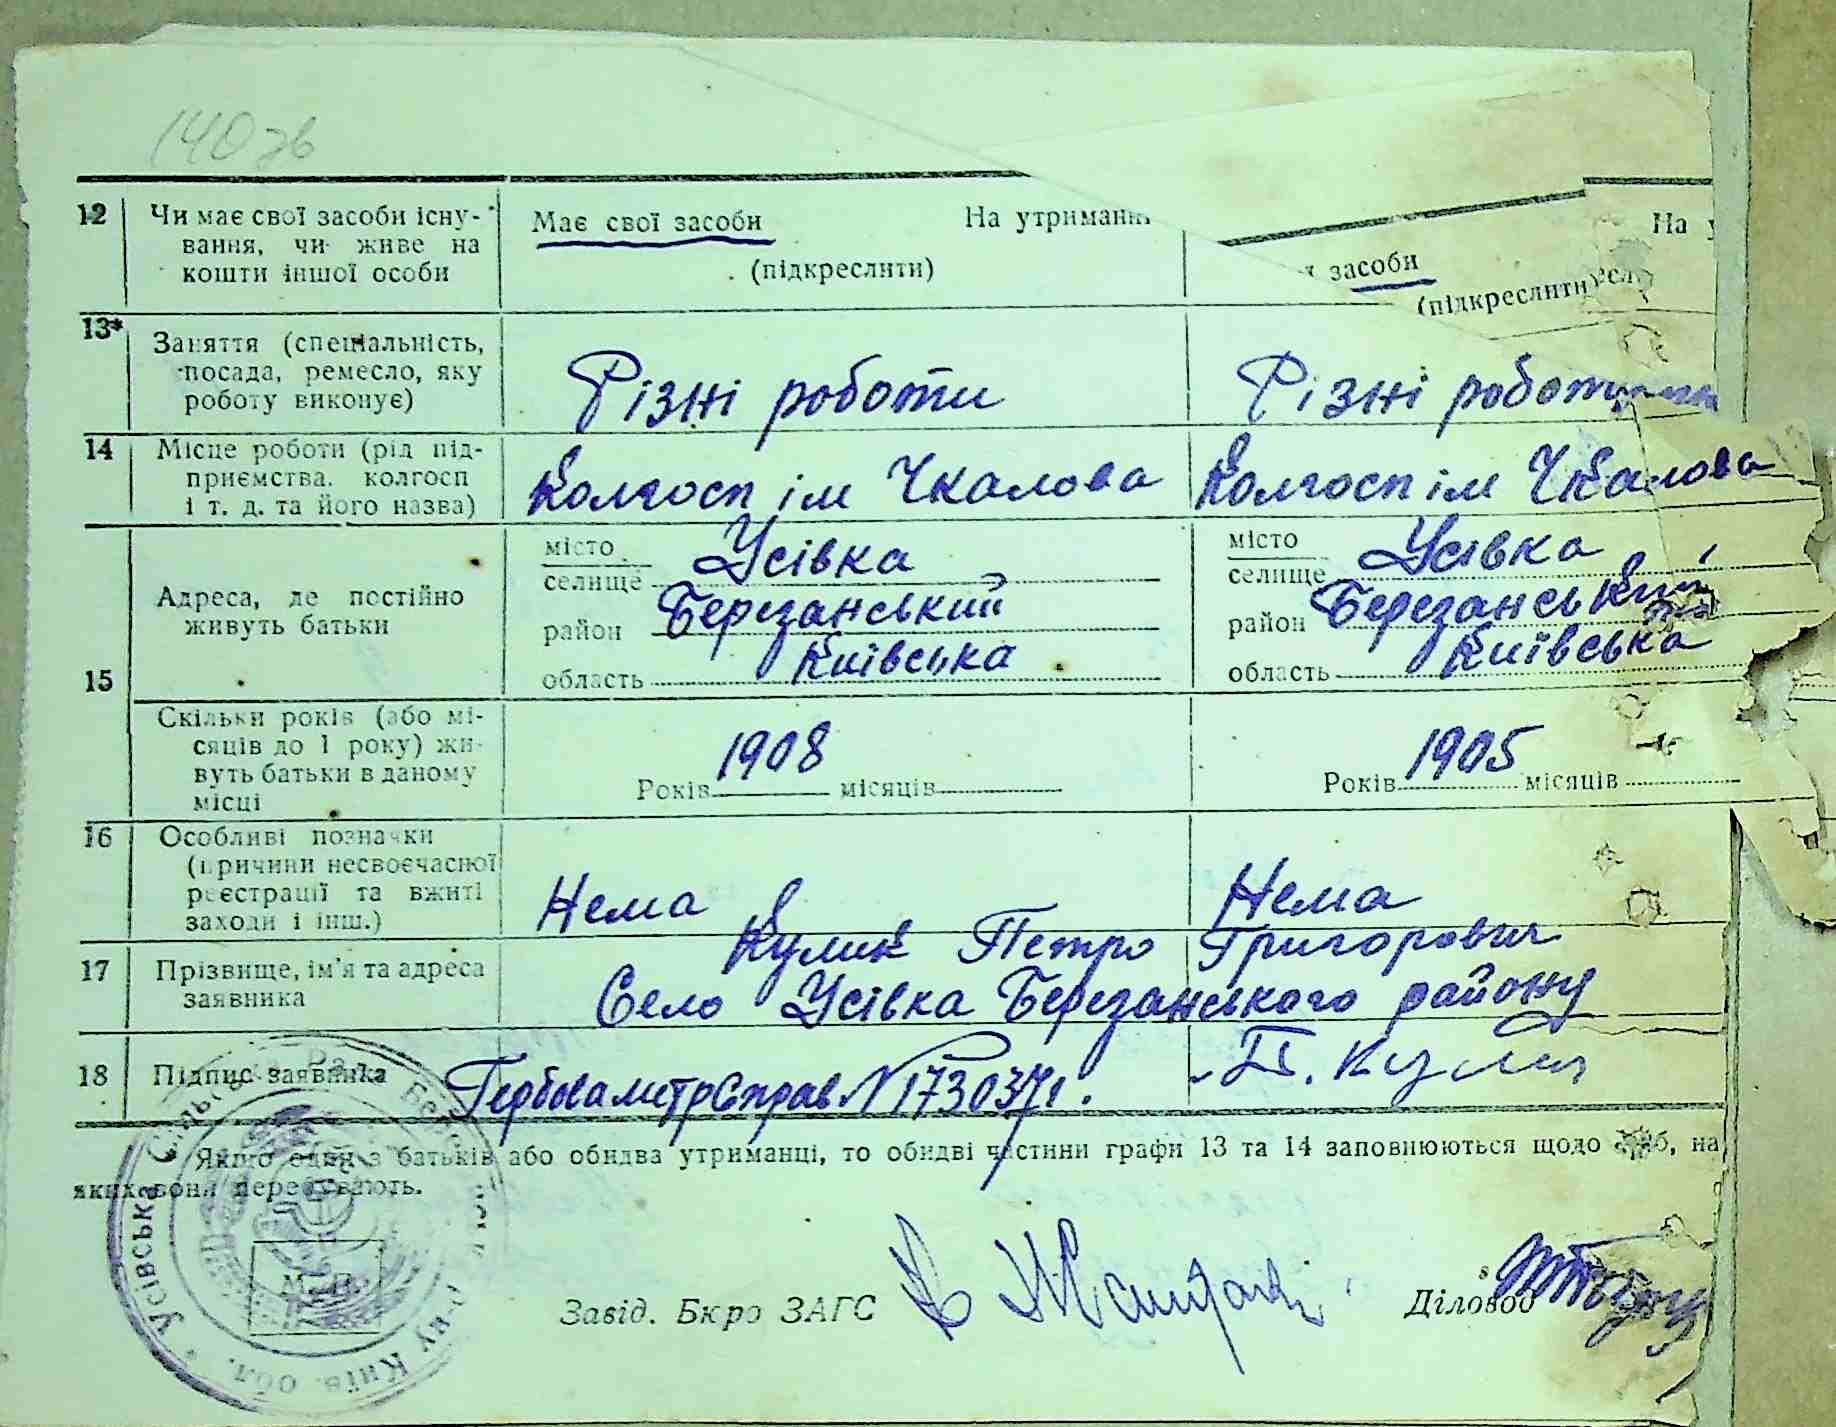 140 зв
12 Чи має свої засоби існу- Має свої засоби На утриманні На у
вання, чи живе на ї засоби
кошти іншої особи (підкреслити) (підкреслити)
13* Заняття (спеціальність,
посада, ремесло, яку Різні роботи Різні роботи
роботу виконує)
14 Місце роботи (рід під-
приємства, колгосп Колгосп ім Чкалова Колгосп ім Чкалова
і т. д. та його назва)
15 Адреса, де постійно
живуть батьки
місто
селище Усівка
район Березанський
область Київська
місто
селище Усівка
район Березанський
область Київська
Скільки років (або мі-
сяців до 1 року) жи-
вуть батьки в даному
місці
Років 1908 місяців Років 1905 місяців
16 Особливі позначки
(причини несвоєчасної
реєстрації та вжиті
заходи і інш.) Нема Нема
17 Прізвище, ім'я та адреса
заявника
Кулик Петро Григорович
Село Усівка Березанського району
18 Підпис заявника П. Кулик
Якщо один з батьків або обидва утриманці, то обидві частини графи 13 та 14 заповнюються щодо осіб, на
яких вони перебувають.
Усівська Сільська Рада Київ. обл.
М. П.
Завід. Бюро ЗАГС Діловод